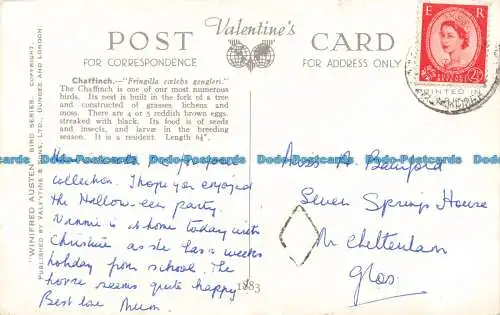 Valentine's
POST CARD
FOR CORRESPONDENCE
FOR ADDRESS ONLY
E R
POSTAGE REVENUE
2½
PRINTED IN
Chaffinch.—"Fringilla cœlebs gengleri."
The Chaffinch is one of our most numerous
birds. Its nest is built in the fork of a tree
and constructed of grasses lichens and
moss. There are 4 or 5 reddish brown eggs,
streaked with black. Its food is of seeds
and insects, and larvæ in the breeding
season. It is a resident. Length 6¼".
"WINIFRED AUSTEN" BIRD SERIES. COPYRIGHT.
PUBLISHED BY VALENTINE & SONS, LTD., DUNDEE AND LONDON.
your
collection. I hope you enjoyed
the Hallow-een party.
Vinnie is at home today with
Christine as she has a weeks
holiday from school. The
horse seems quite happy
Best love Mum.
1883
Bamford
Seven Springs House
Nr Cheltenham
Glos.
Postcards
Postcards
Postcards
Postcards
Postcards
Postcards